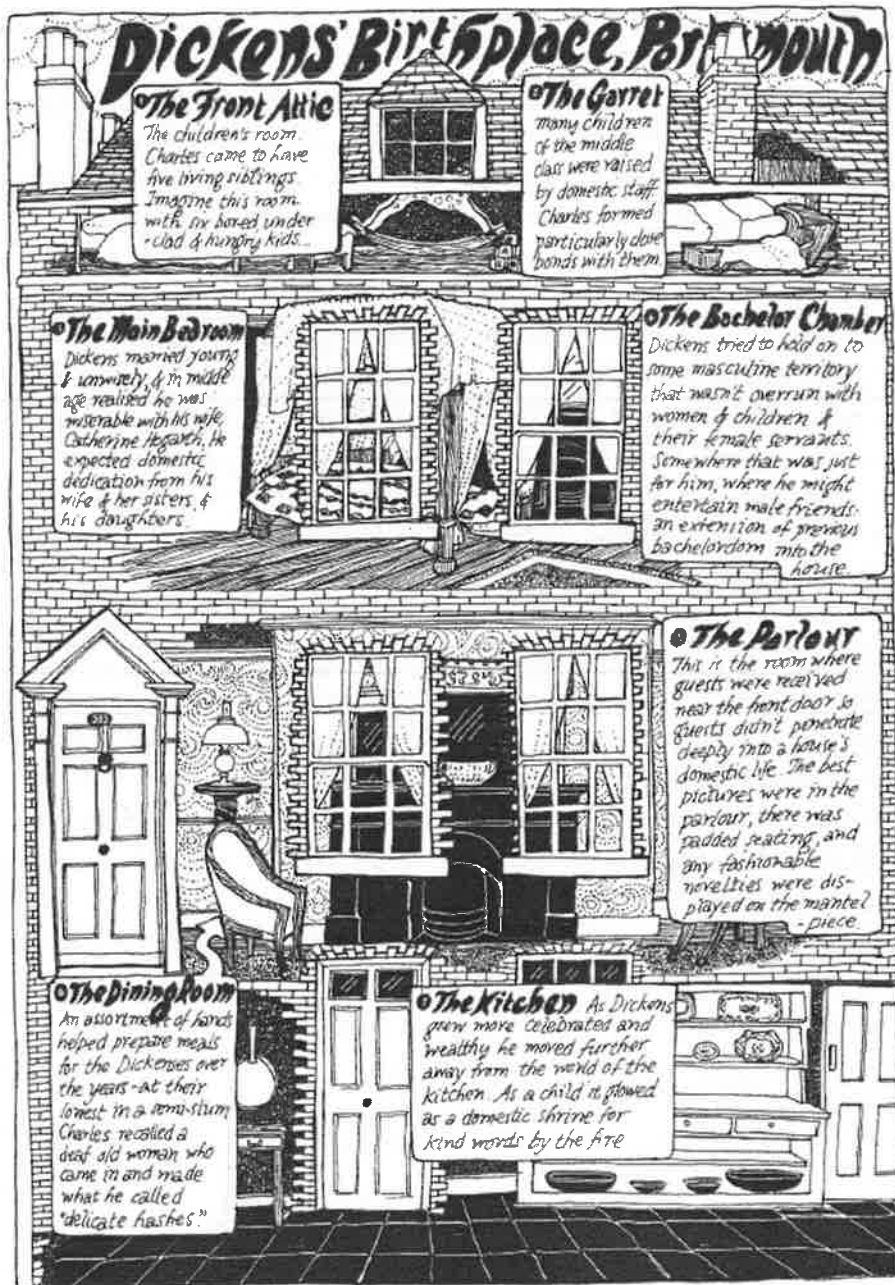 Dickens' Birthplace, Portsmouth
The Front Attic
The children's room.
Charles came to have
five living siblings.
Imagine this room
with six bored under
-clad & hungry kids...
The Garret
many children
of the middle
class were raised
by domestic staff
Charles formed
particularly close
bonds with them.
The Main Bedroom
Dickens married young
& unwisely, & in middle
age realised he was
miserable with his wife,
Catherine Hogarth, he
expected domestic
dedication from his
wife & her sisters, &
his daughters.
The Bachelor Chamber
Dickens tried to hold on to
some masculine territory
that wasn't overrun with
women & children &
their female servants.
Somewhere that was just
for him, where he might
entertain male friends-
an extension of previous
bachelordom into the
house.
The Parlour
This is the room where
guests were received
near the front door so
guests didn't penetrate
deeply into a house's
domestic life. The best
pictures were in the
parlour, there was
padded seating, and
any fashionable
novelties were dis-
played on the mantel
-piece.
The Dining Room
An assortment of hands
helped prepare meals
for the Dickenses over
the years-at their
lowest in a semi-slum
Charles recalled a
deaf old woman who
came in and made
what he called
"delicate hashes."
The Kitchen As Dickens
grew more celebrated and
wealthy he moved further
away from the world of the
kitchen. As a child it glowed
as a domestic shrine for
kind words by the fire